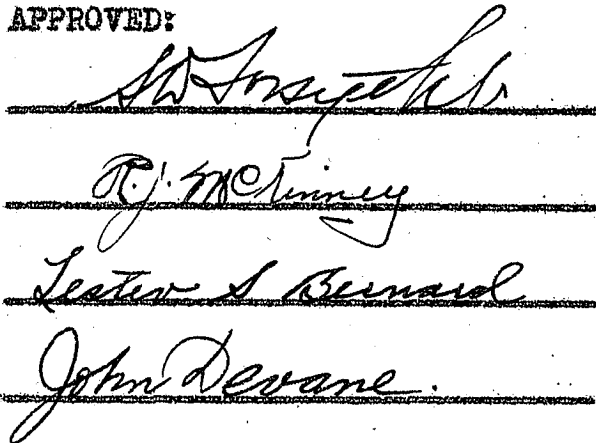 APPROVED:
S D Forsyte
R. J. McKinney
Lester S Bernard
John Devane.